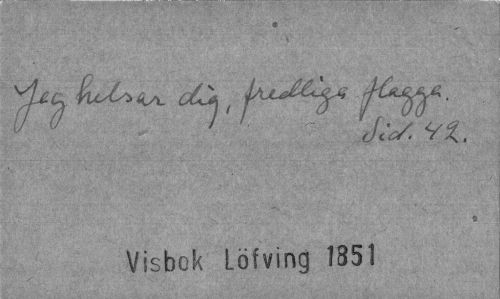 Jag helsar dig, fredliga flagga.
Sid. 42.
Visbok Löfving 1851